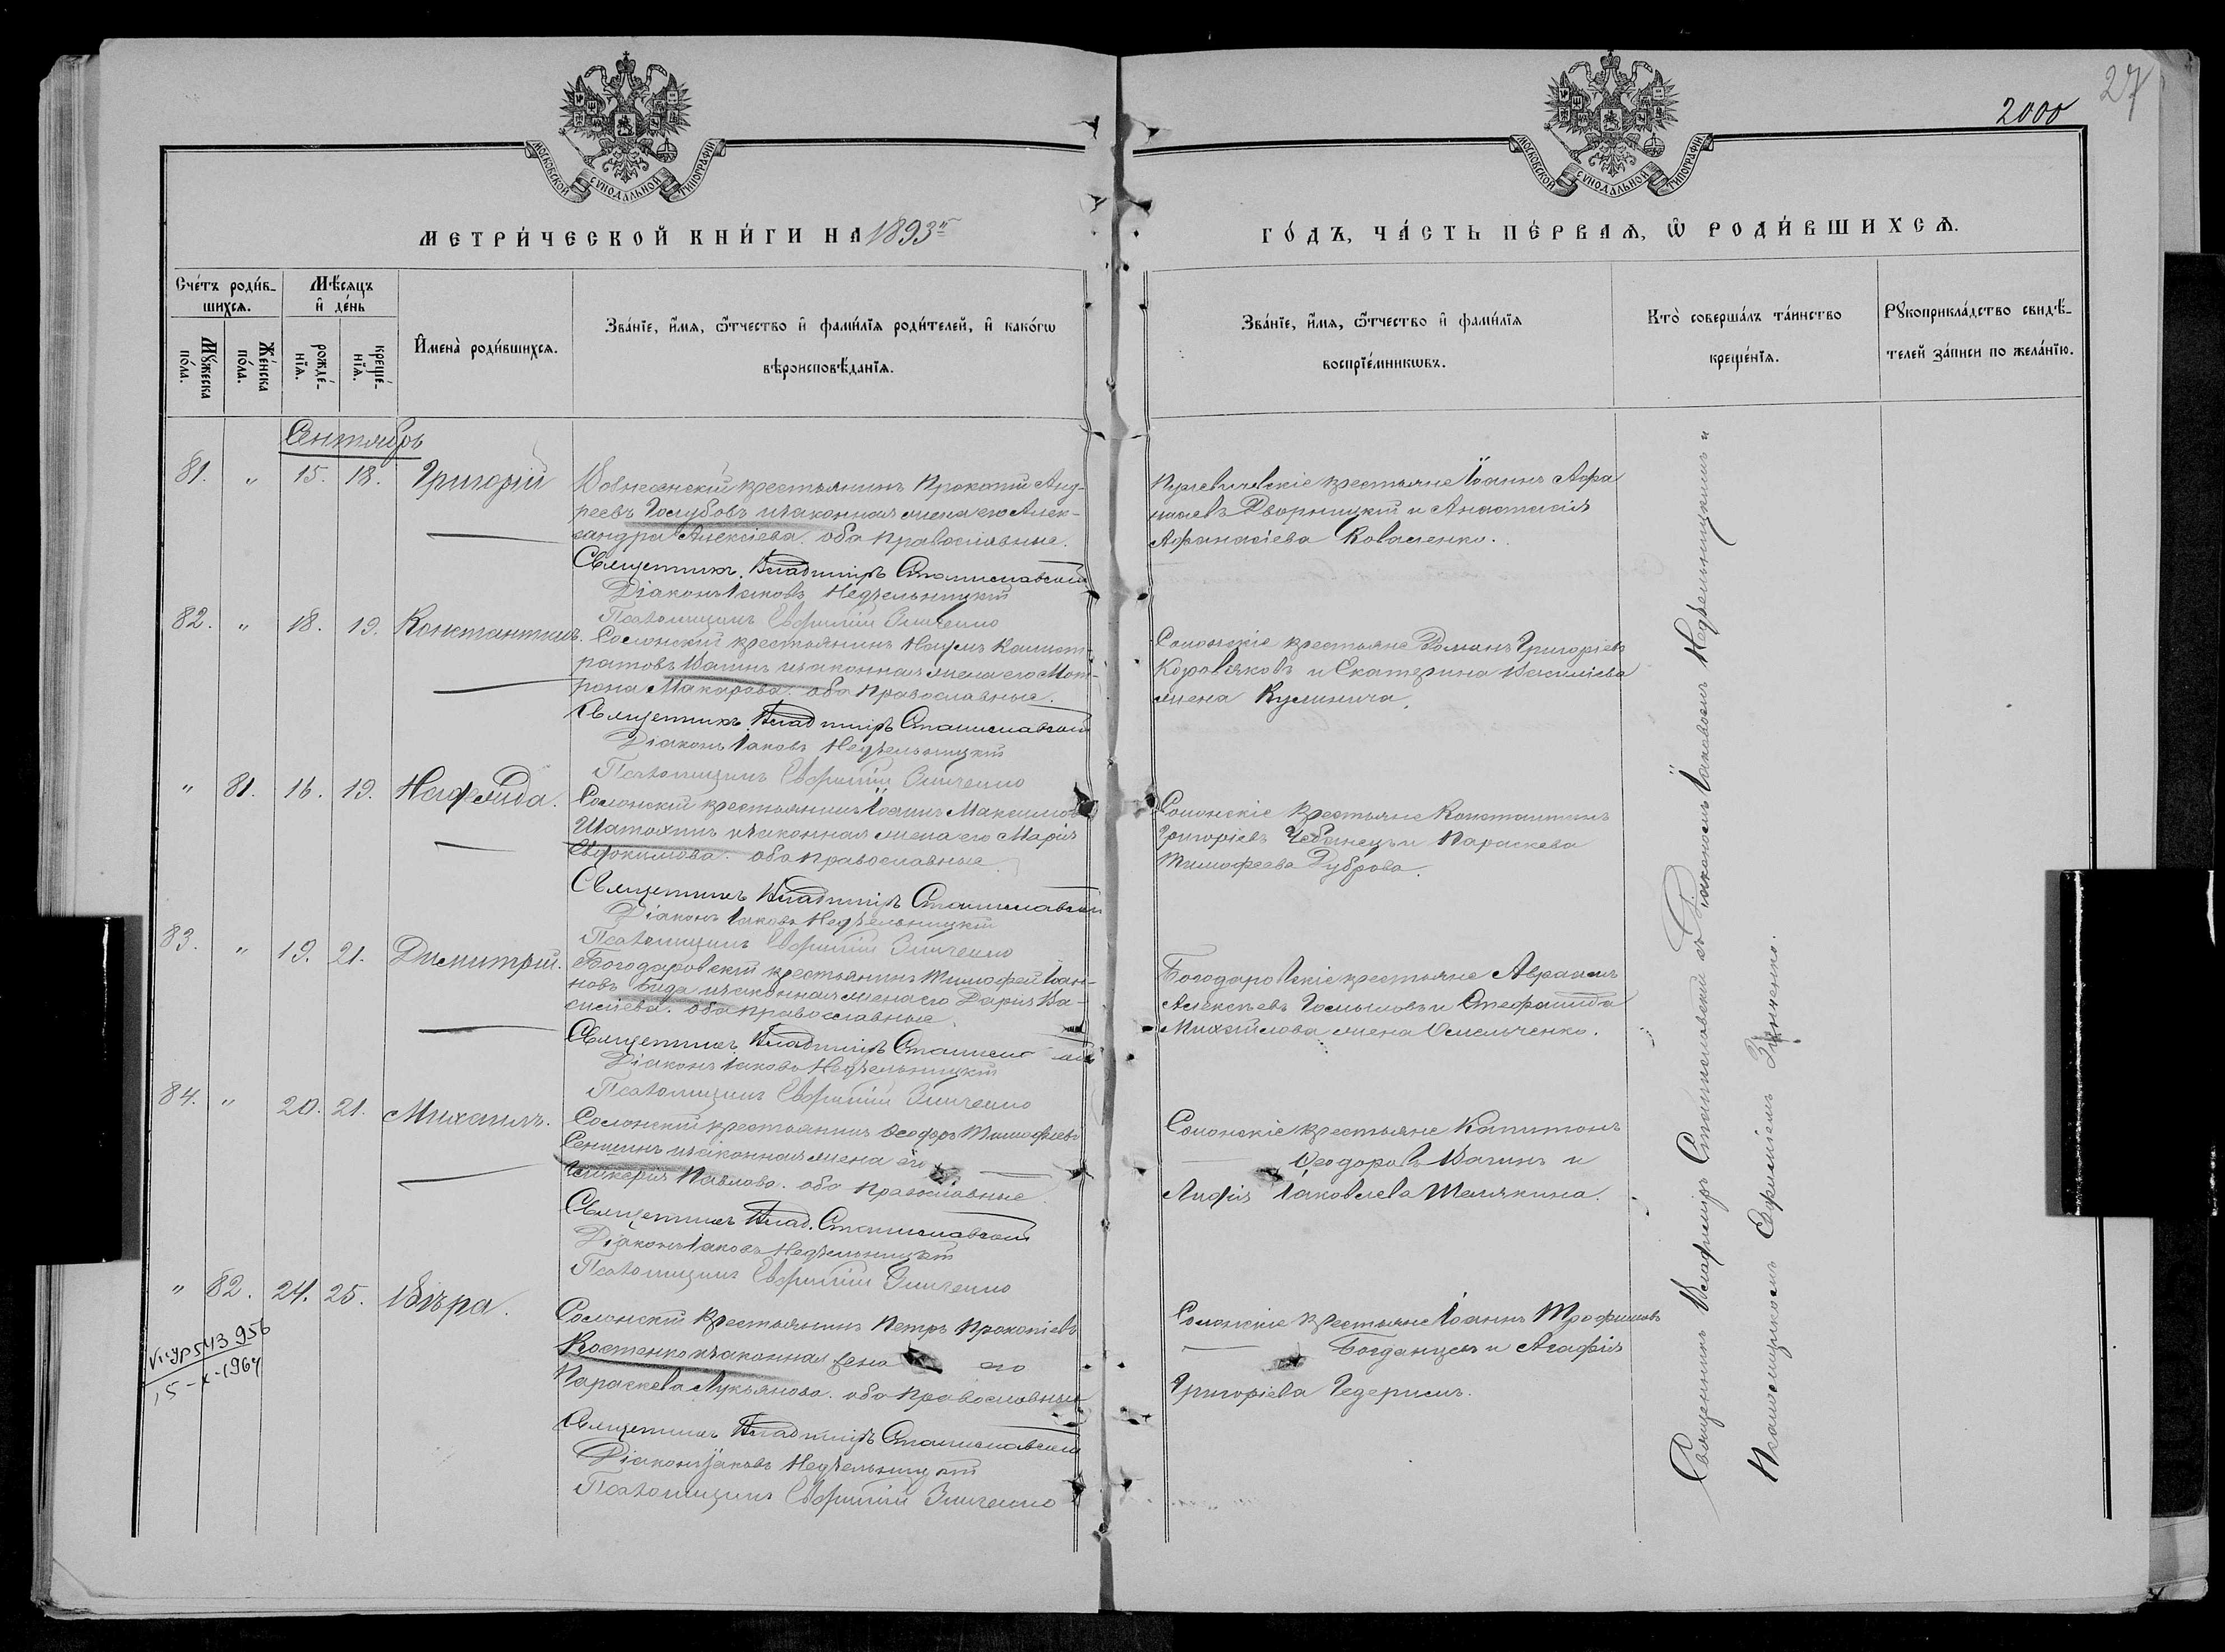 27
2000
МОСКОВСКОЙ СУНОДАЛЬНОЙ ТИПОГРАФІИ
МОСКОВСКОЙ СУНОДАЛЬНОЙ ТИПОГРАФІИ
МЕТРИ́ЧЕСКОЙ КНИ́ГИ НА 1893й
ГО́ДЪ, ЧА́СТЬ ПЕ́РВАѦ, Ѡ҆ РОДИ́ВШИХСѦ.
Сче́тъ роди́в-
шихсѧ.
Мѣ́сѧцъ
и҆ де́нь
Мꙋ́жеска
по́ла.
Же́нска
по́ла.
рожде́-
нїѧ.
креще́-
нїѧ.
И҆мена̀ роди́вшихсѧ.
Зва́нїе, и҆́мѧ, ѻ҆́тчество и҆ фами́лїѧ роди́телей, и҆ како́гѡ
вѣроисповѣ́данїѧ.
Зва́нїе, и҆́мѧ, ѻ҆́тчество и҆ фами́лїѧ
воспрїе́мникѡвъ.
Кто̀ соверша́лъ та́инство
креще́нїѧ.
Рꙋкоприкла́дство свидѣ́-
телей за́писи по жела́нїю.
Сентябрь
81. " 15. 18. Григорій
Вознесенскій крестьянинъ Прокопій Анд-
реевъ Голубовъ и законная жена его Алек-
сандра Алексіева. оба православные.
Священникъ Владиміръ Станиславскій
Діаконъ Іаковъ Недзельницкій
Псаломщикъ Евфимій Зинченко
крестьяне Іоаннъ Афа
насіевъ Дворницкій и Анастасія
Афанасіева Коваленко.
82. " 18. 19. Константинъ.
Солонскій крестьянинъ Наумъ Калист-
ратовъ Вагинъ и законная жена его Мат-
рона Макарова. оба православные.
Священникъ Владиміръ Станиславскій
Діаконъ Іаковъ Недзельницкій
Псаломщикъ Евфимій Зинченко
Солонскіе крестьяне Романъ Григоріевъ
Коровяковъ и Екатерина Василіева
жена Кулинича.
" 81. 16. 19. Наѳанаида.
Солонскій крестьянинъ Іоаннъ Максимовъ
Шатохинъ и законная жена его Марія
Евдокимова. оба православные.
Священникъ Владиміръ Станиславскій
Діаконъ Іаковъ Недзельницкій
Псаломщикъ Евфимій Зинченко
Солонскіе крестьяне Константинъ
Григоріевъ Чебанецъ и Параскева
Тимофеева Дуброва.
83. " 19. 21. Димитрій.
Богодаровскій крестьянинъ Тимофей Іоан-
новъ Бида и законная жена его Дарія Ва-
силіева. оба православные.
Священникъ Владиміръ Станиславскій
Діаконъ Іаковъ Недзельницкій
Псаломщикъ Евфимій Зинченко
Богодаровскіе крестьяне Авраамъ
Алексѣевъ и Стефанида
Михайлова жена Омельченко.
84. " 20. 21. Михаилъ.
Солонскій крестьянинъ Ѳеодоръ Тимофѣевъ
Сенинъ и законная жена его
Гликерія Павлова. оба православные.
Священникъ Влад. Станиславскій
Діаконъ Іаковъ Недзельницкій
Псаломщикъ Евфимій Зинченко
Солонскіе крестьяне Капитонъ
Ѳеодоровъ Вагинъ и
Іаковлева Шалякина.
" 82. 24. 25. Вѣра.
Солонскій крестьянинъ Петръ Прокопіевъ
Костенко и законная жена его
Параскева Лукьянова. оба православные
Священникъ Владиміръ Станиславскій
Діаконъ Іаковъ Недзельницкій
Псаломщикъ Евфимій Зинченко
Солонскіе крестьяне Іоаннъ Трофимовъ
Богданцевъ и Агафія
Григоріева
543956
15-X-1964
Священникъ Владиміръ Станиславскій съ Діакономъ Іаковомъ Недзельницкимъ и
Псаломщикомъ Евфиміемъ Зинченко.